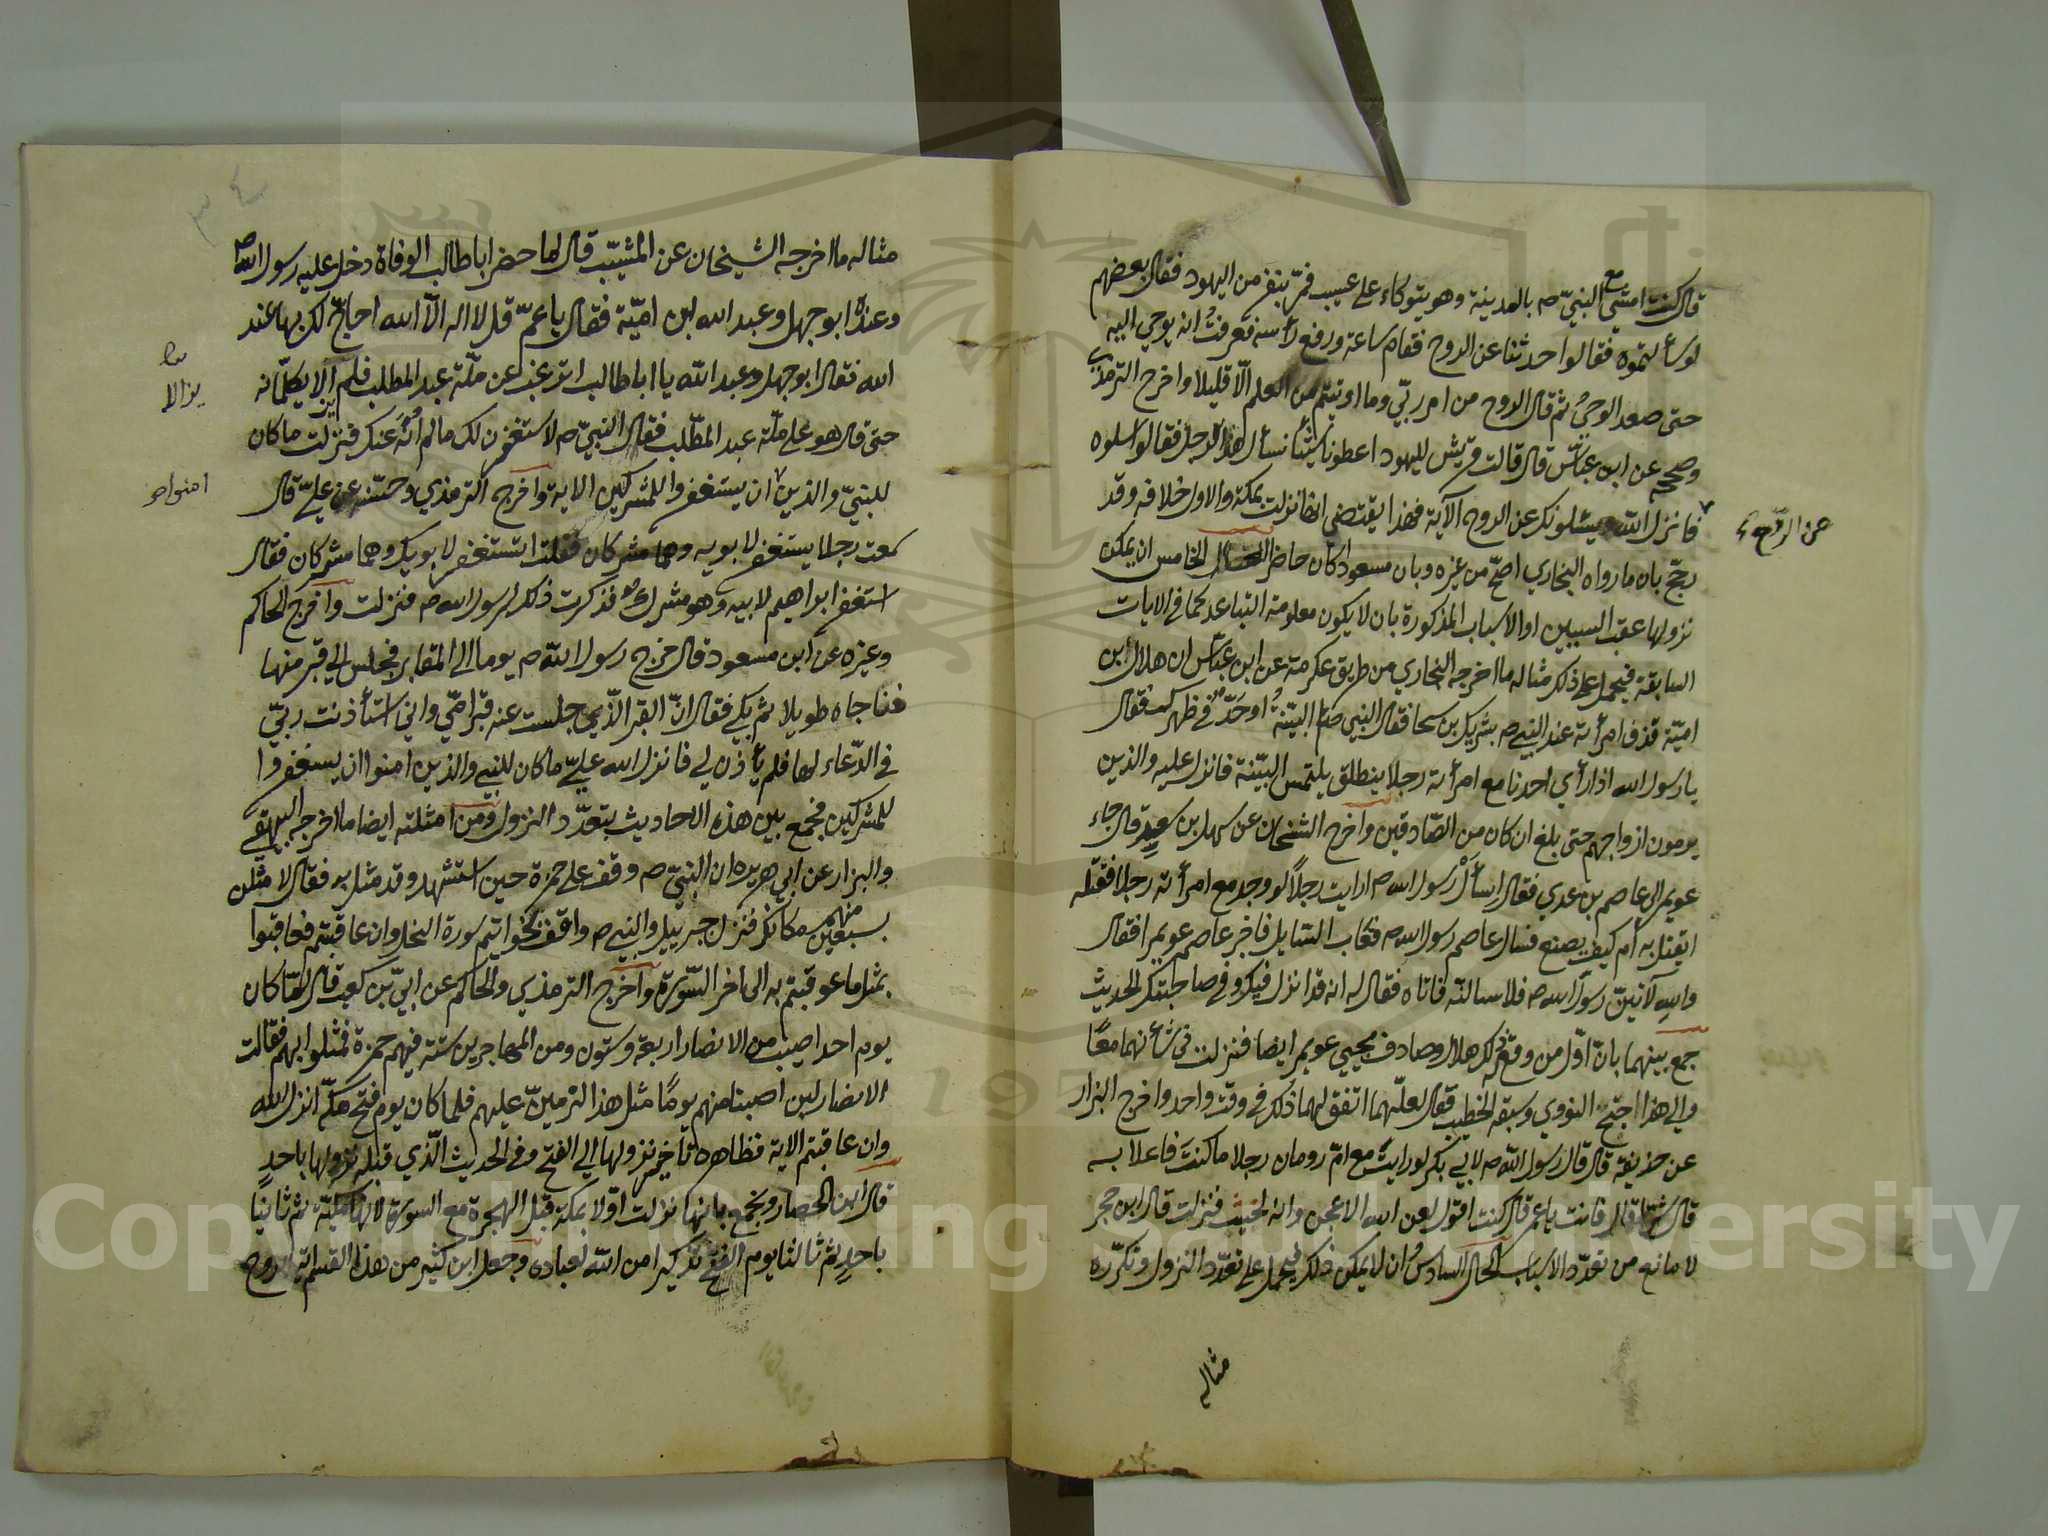 قال كنت امشي مع النبيّ صـ بالمدينة وهو يتوكاء على عسيب فمرّ بنفر من اليهود فقال بعضهم
لوسألتموه فقالوا حدثنا عن الروح فقام ساعة ورفع رأسه فعرفتُ انه يوحي اليه
حتى صعد الوحيُ ثم قال الروح من امر ربّي وما اوتيتم من العلم الّا قليلا واخرج الترمذي
وصححه عن ابن عبّاس قال قالت قريش لليهود اعطونا شيئا نسأل هذا الرجل فقالوا سلوه
فانزل الله ويسئلونك عن الروح الآية فهذا يقتضي انها نزلت بمكة والاول خلافه وقد
عن الروح
رجّح بان ما رواه البخاري اصحّ من غيره وبان مسعود كان حاضر القصة الحال الخامس ان يمكن
نزولها عقب السببين او الاسباب المذكورة بان لا يكون معلومة التباعد كما في الايات
السابقة فيحمل على ذلك مثاله ما اخرجه البخاري من طريق عكرمة عن ابن عبّاس ان هلال ابن
اميّة قذف امرأته عند النبي صـ بشريك بن سحما فقال النبي صـ البيّنةُ اوحَدٌّ في ظهرك فقال
يا رسول الله اذا رأي احدنا مع امرأته رجلا ينطلق يلتمس البيّنة فانزل عليه والذين
يرمون ازواجهم حتى بلغ ان كان من الصّادقين واخرج الشيخان عن سهل بن سعيد قال جاء
عويمر الى عاصم بن عدي فقال اِسأل رسول الله صـ ارايت رجلاً لو وجد مع امرأته رجلا فقتله
ايقتل به أم كيف يصنع فسال عاصم رسول الله صـ فعاب السّايل فاخبر عاصم عويمرا فقال
والله لآتينّ رسول الله صـ فلاسالنّه فاتاه فقال له انه قد انزل فيك وفي صاحبتك الحديث
جمع بينهما بانّ اوّل من وقع له ذلك هلال وصادف مجيي عويمر ايضا فنزلت في شأنهما معًا
والي هذا اجنح النووي وسبقه الخطيب فقال لعلّهما اتفق لهما ذلك في وقت واحد واخرج البزار
عن حذيفة قال قال رسول الله صـ لابي بكر لورايت مع امّ رومان رجلا ما كنت فاعلا به
قال شرّا قال فانت يا عمر قال كنت اقول لعن الله الاعجز وانه لخبيث فنزلت قال ابن حجر
لا مانع من تعدّد الاسباب الحال السادس ان لا يمكن ذلك فيحمل على تعدّد النزول وتكرّره
مثاله
٣٤
مثاله ما اخرجه الشيخان عن المسّيب قال لما حضر ابا طالب الوفاة دخل عليه رسول الله صـ
وعنده ابو جهل وعبد الله ابن اميّة فقال يا عمّ قل لا اله الّا الله احاجّ لك بها عند
الله فقال ابو جهل وعبد الله يا ابا طالب اترغب عن ملّة عبد المطلب فلم يزالا يكلّمانه
يزالا
حتى قال هو على ملّة عبد المطّلب فقال النبيّ صـ لاستغفرن لك ما لم اُنهَ عنك فنزلت ما كان
للنبيّ والذين ان يستغفروا للمشركين الاية واخرج الترمذي وحسّنه عن عليّ قال
امنوا صـ
سمعت رجلا يستغفر لابويه وهما مشركان فقلت اتستغفر لابويك وهما مشركان فقال
استغفر ابراهيم لابيه وهو مشرك فذكرت ذلك لرسول الله صـ فنزلت واخرج الحاكم
وغيره عن ابن مسعود قال خرج رسول الله صـ يوما الى المقابر فجلس الي قبر منها
فناجاه طويلا ثم بكي فقال انّ القبر الّذي جلست عنه قبر امّي واني استأذنت ربّي
في الدّعاء لها فلم يأذن لي فانزل الله عليّ ما كان للنبي والذين امنوا ان يستغفروا
للمشركين فجمع بين هذه الاحاديث بتعدّد النزول ومن امثلته ايضا ما اخرجه البيهقي
والبزار عن ابي هريرة ان النبيّ صـ وقف على حمزة حين استشهد وقد مثل به فقال لامثّلن
بسبعين منهم مكانك فنزل جبرييل والنبي صـ واقف بخواتيم سورة النحل وان عاقبتم فعاقبوا
بمثل ما عوقبتم به الى اخر السّورة واخرج الترمذي والحاكم عن ابيّ بن كعب قال لمّا كان
يوم احد اصيب من الانصار اربعة وستون ومن المهاجرين ستة فيهم حمزة فمثلوا بهم فقالت
الانصار لين اصبنا منهم يومًا مثل هذا لنرمينّ عليهم فلما كان يوم فتح مكّة انزل الله
وان عاقبتم الاية فظاهره تأخير نزولها الي الفتح وفي الحديث الّذي قبله نزولها باحد
قال ابن الحصار ويجمع بانها نزلت اوّلا بمكة قبل الهجرة مع السورة لانها مكيّة ثم ثانيًا
باحد ثم ثالثا يوم الفتح تذكيرا من الله لعباده وجعل ابن كثير من هذا القسم اية الروح
Copyright © King Saud University
1957